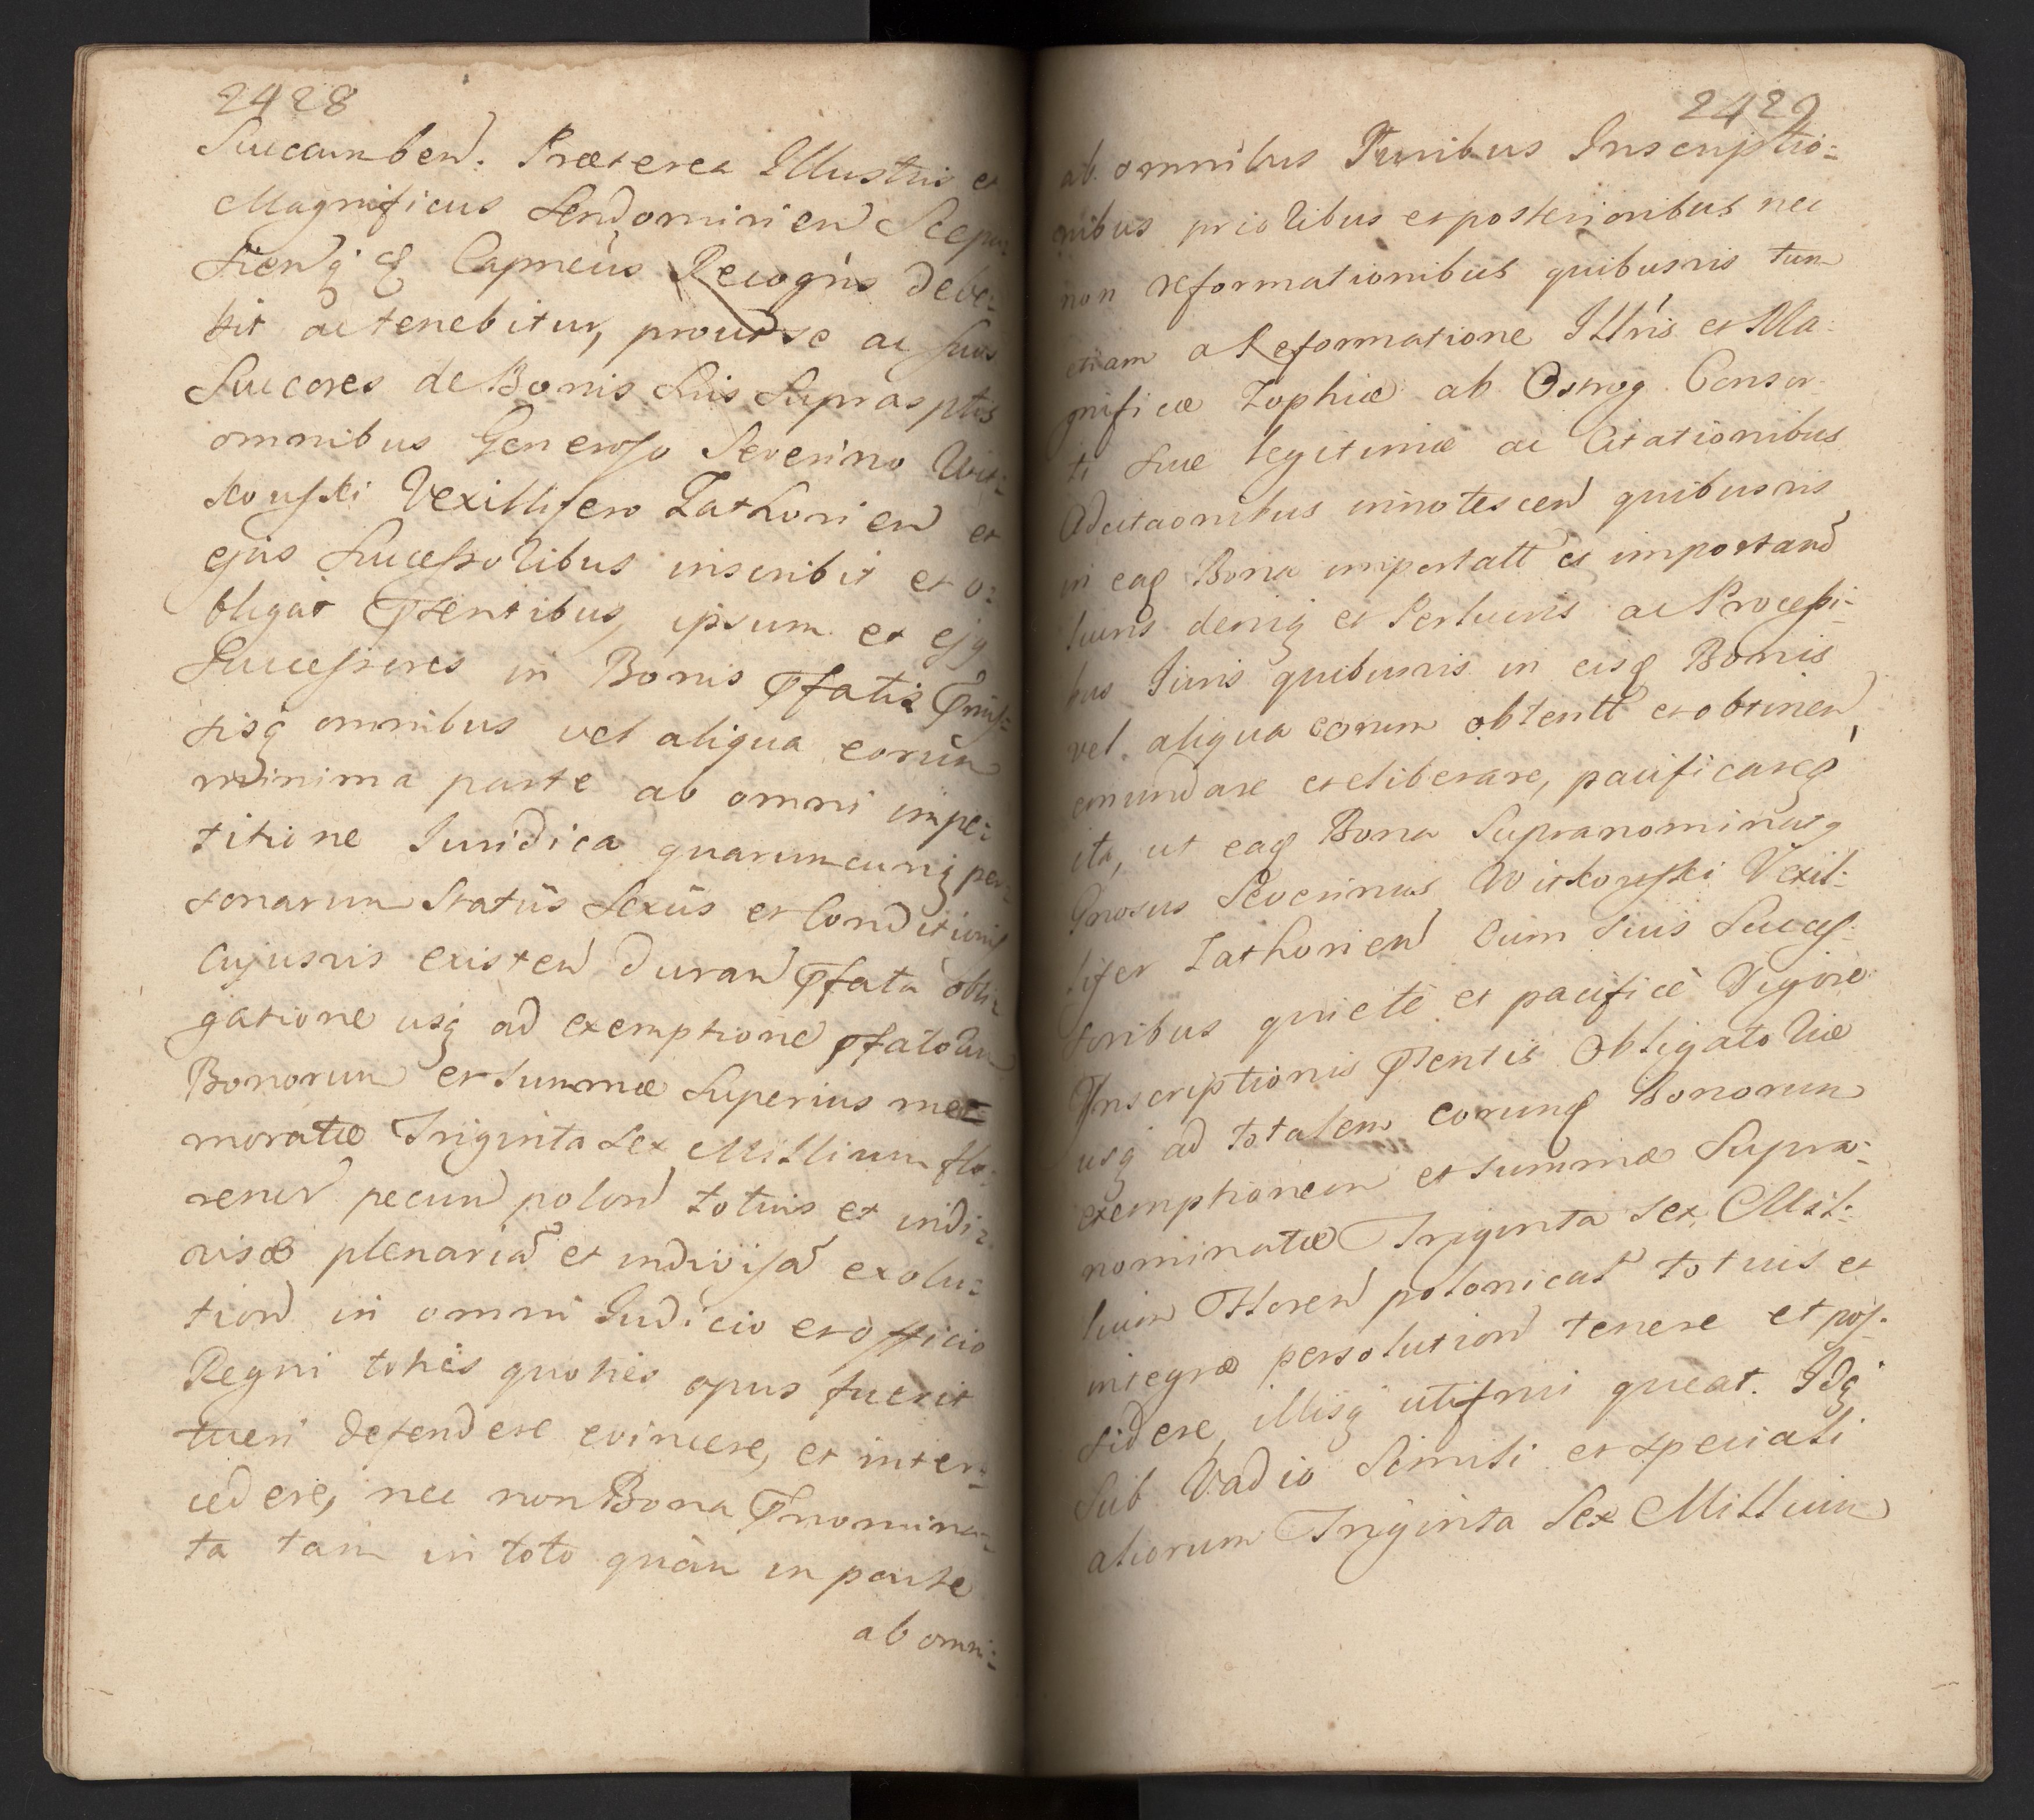 2428
Succumben. Præterea Illustris et
Magnificus Sendomirien Scepu-
sien q̃ & Capneus Recogñs debe=
bit ac tenebitur, prout se ac suos
Succores de Bonis suis supra sptis
omnibus Generoso Severino Wit=
kowski Vexillifero Zathorien et
ejus Successoribus inscribit et o=
bligat pſentibus, ipsum et ejq
Successores in Bonis pfatis pmis=
sisq omnibus vel aliqua eorum
minima parte ab omni impe=
titione Juridica quarumcunq per=
sonarum Status Sexus et Conditionis
Cujusvis existen duran pfata obli=
gatione usq ad exemptione pfatorum
Bonorum et summæ superius me=
moratæ Triginta Sex Millium flo=
renor pecun polon totius et indi=
visæ plenariã et indivisã exolu=
tion in omni Judicio et officio
Regni toties quoties opus fuerit
tueri defendere evincere, et inter=
cedere, nec non Bona pnomina=
ta tam in toto quam in parte
ab omni=
2429
ab omnibus Juribus Inscriptio=
nibus prioribus et posterioribus nec
non reformationibus quibusvis tum
etiam a Reformatione Illris et Ma=
gnificæ Zophiæ ab Ostrog Consor=
ti suæ legitimæ ac Citationibus
Adcitaonibus innotescen quibusvis
in eaq Bona importatt et importand
lucris deniq et Perlucris ac Processi=
bus Juris quibusvis in eisq Bonis
vel aliqua eorum obtentt et obtinen
emundare et eliberare, pacificareq
ita, ut eaq Bona Supranominatq
Gnosus Severinus Witkowski Vexil=
lifer Zathorien Cum suis Succes=
soribus quiete et pacifice Vigore
Inscriptionis pſentis Obligatoriæ
usq ad totalem eorunq Bonorum
exemptionem et summæ Supra=
nominatæ Triginta Sex Mil=
lium Floren polonicat totius et
integræ persolution tenere et pos=
sidere, illisq uti frui queat. Idq
sub Vadio Simili et speciali
aliorum Triginta Sex Millium